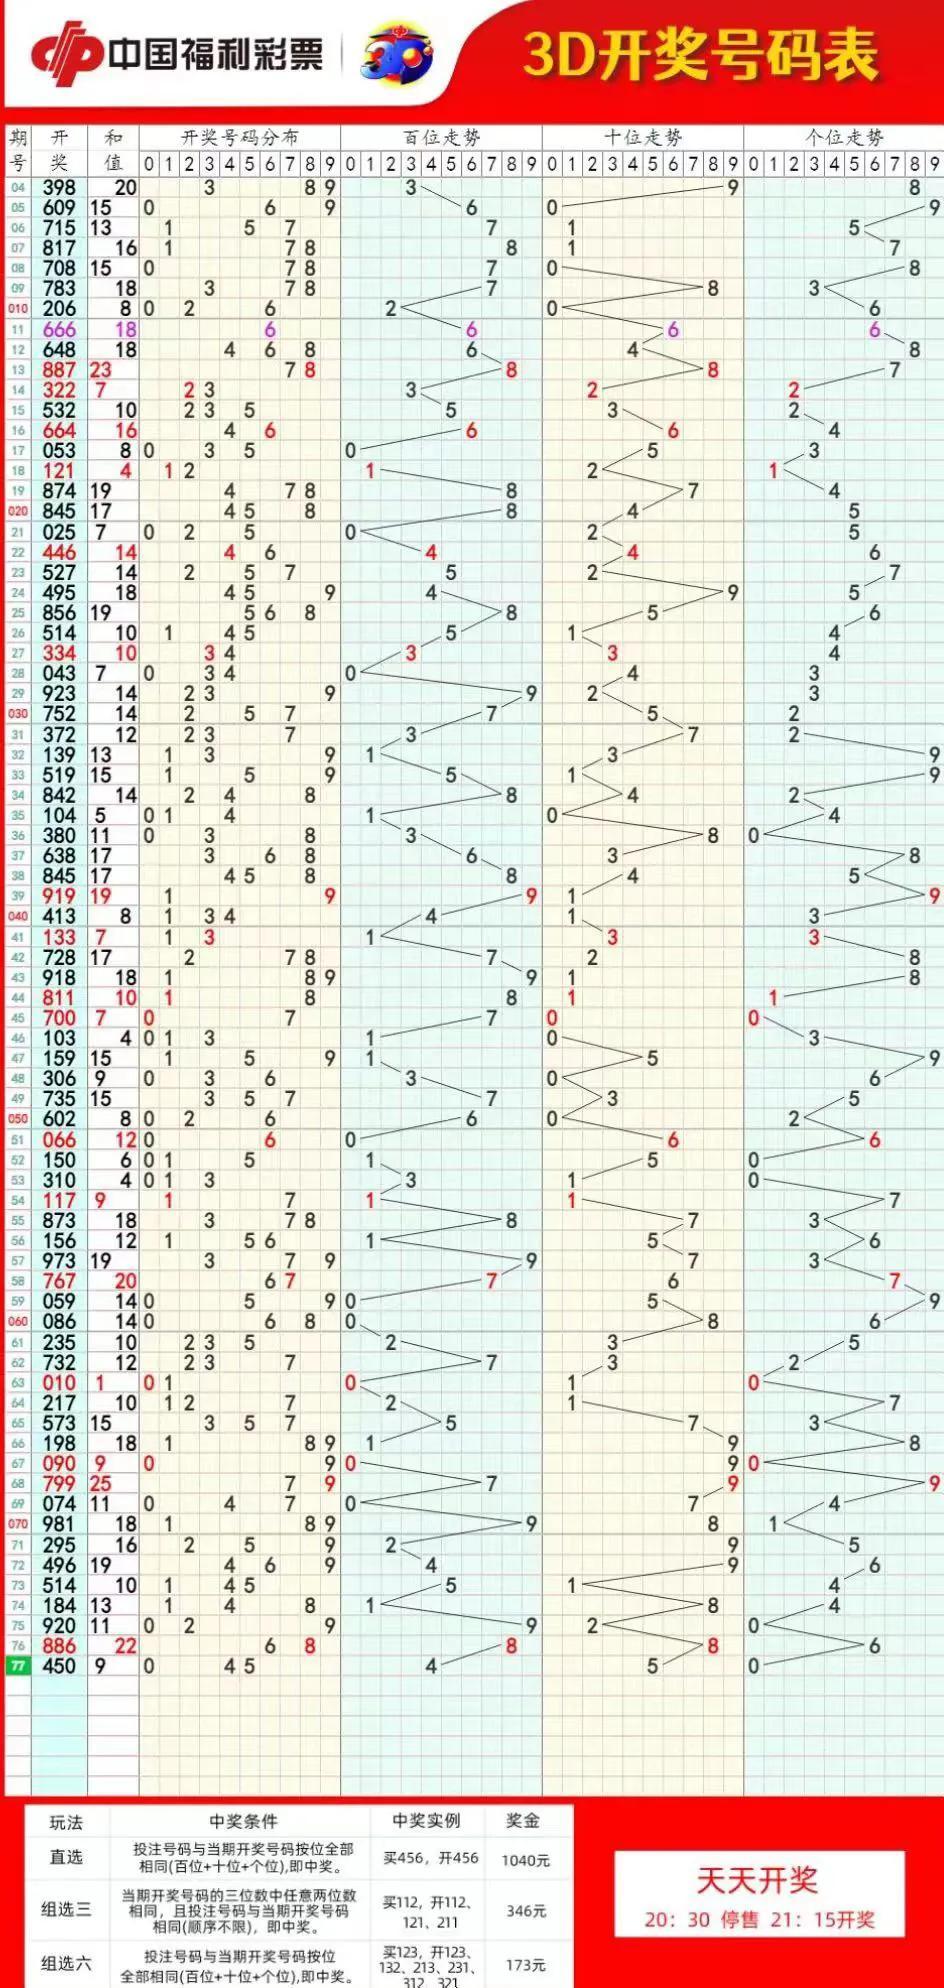 中国福利彩票 3D 3D开奖号码表
期号 开奖 和值 开奖号码分布 百位走势 十位走势 个位走势
0 1 2 3 4 5 6 7 8 9 0 1 2 3 4 5 6 7 8 9 0 1 2 3 4 5 6 7 8 9 0 1 2 3 4 5 6 7 8 9
04 398 20 3 8 9 3 9 8
05 609 15 0 6 9 6 0 9
06 715 13 1 5 7 7 1 5
07 817 16 1 7 8 8 1 7
08 708 15 0 7 8 7 0 8
09 783 18 3 7 8 7 8 3
010 206 8 0 2 6 2 0 6
11 666 18 6 6 6 6
12 648 18 4 6 8 6 4 8
13 887 23 7 8 8 8 7
14 322 7 2 3 3 2 2
15 532 10 2 3 5 5 3 2
16 664 16 4 6 6 6 4
17 053 8 0 3 5 0 5 3
18 121 4 1 2 1 2 1
19 874 19 4 7 8 8 7 4
020 845 17 4 5 8 8 4 5
21 025 7 0 2 5 0 2 5
22 446 14 4 6 4 4 6
23 527 14 2 5 7 5 2 7
24 495 18 4 5 9 4 9 5
25 856 19 5 6 8 8 5 6
26 514 10 1 4 5 5 1 4
27 334 10 3 4 3 3 4
28 043 7 0 3 4 0 4 3
29 923 14 2 3 9 9 2 3
030 752 14 2 5 7 7 5 2
31 372 12 2 3 7 3 7 2
32 139 13 1 3 9 1 3 9
33 519 15 1 5 9 5 1 9
34 842 14 2 4 8 8 4 2
35 104 5 0 1 4 1 0 4
36 380 11 0 3 8 3 8 0
37 638 17 3 6 8 6 3 8
38 845 17 4 5 8 8 4 5
39 919 19 1 9 9 1 9
040 413 8 1 3 4 4 1 3
41 133 7 1 3 1 3 3
42 728 17 2 7 8 7 2 8
43 918 18 1 8 9 9 1 8
44 811 10 1 8 8 1 1
45 700 7 0 7 7 0 0
46 103 4 0 1 3 1 0 3
47 159 15 1 5 9 1 5 9
48 306 9 0 3 6 3 0 6
49 735 15 3 5 7 7 3 5
050 602 8 0 2 6 6 0 2
51 066 12 0 6 0 6 6
52 150 6 0 1 5 1 5 0
53 310 4 0 1 3 3 1 0
54 117 9 1 7 1 1 7
55 873 18 3 7 8 8 7 3
56 156 12 1 5 6 1 5 6
57 973 19 3 7 9 9 7 3
58 767 20 6 7 7 6 7
59 059 14 0 5 9 0 5 9
060 086 14 0 6 8 0 8 6
61 235 10 2 3 5 2 3 5
62 732 12 2 3 7 7 3 2
63 010 1 0 1 0 1 0
64 217 10 1 2 7 2 1 7
65 573 15 3 5 7 5 7 3
66 198 18 1 8 9 1 9 8
67 090 9 0 9 0 9 0
68 799 25 7 9 7 9 9
69 074 11 0 4 7 0 7 4
070 981 18 1 8 9 9 8 1
71 295 16 2 5 9 2 9 5
72 496 19 4 6 9 4 9 6
73 514 10 1 4 5 5 1 4
74 184 13 1 4 8 1 8 4
75 920 11 0 2 9 9 2 0
76 886 22 6 8 8 8 6
77 450 9 0 4 5 4 5 0
玩法 中奖条件 中奖实例 奖金
直选 投注号码与当期开奖号码按位全部
相同(百位+十位+个位),即中奖。 买456，开456 1040元
组选三 当期开奖号码的三位数中任意两位数
相同，且投注号码与当期开奖号码
相同(顺序不限)，即中奖。 买112，开112、
121、211 346元
组选六 投注号码与当期开奖号码按位
全部相同(百位+十位+个位),即中奖。 买123，开123、
132、213、231、
312、321 173元
天天开奖
20：30 停售 21：15开奖